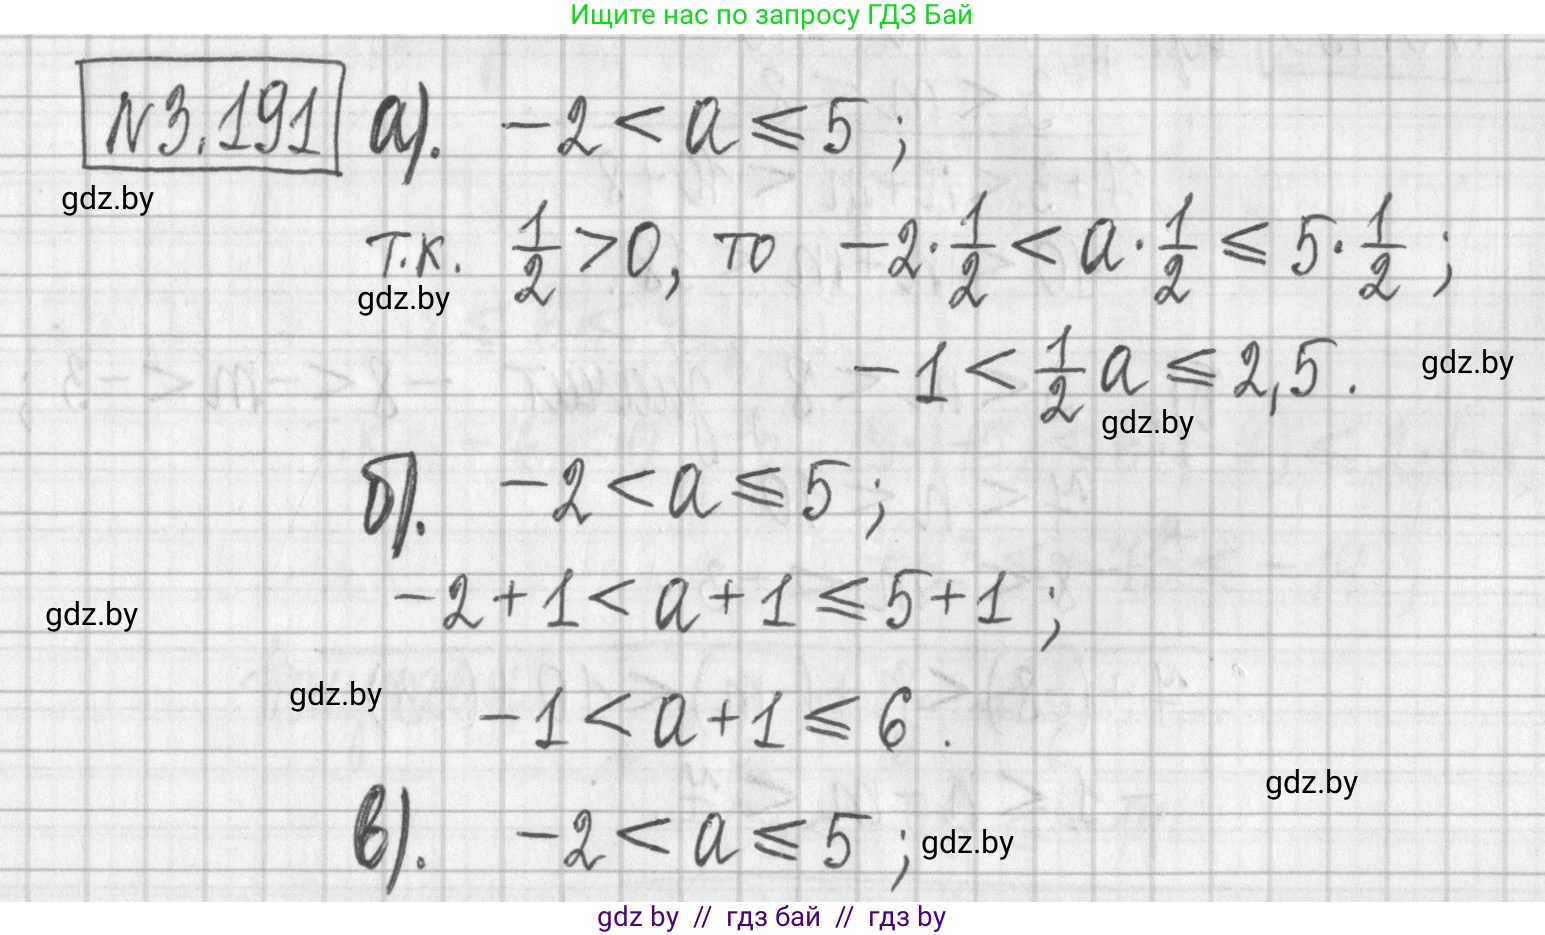 Ищите нас по запросу ГДЗ Бай
№3.191 а). -2 < a ⩽ 5 ;
gdz.by
т.к. 1/2 > 0, то -2·1/2 < a·1/2 ⩽ 5·1/2 ;
gdz.by
-1 < 1/2 a ⩽ 2,5 .
gdz.by
gdz.by
б). -2 < a ⩽ 5 ;
-2+1 < a+1 ⩽ 5+1 ;
gdz.by
gdz.by
-1 < a+1 ⩽ 6 .
gdz.by
в). -2 < a ⩽ 5 ;
gdz.by
gdz by // гдз бай // гдз by